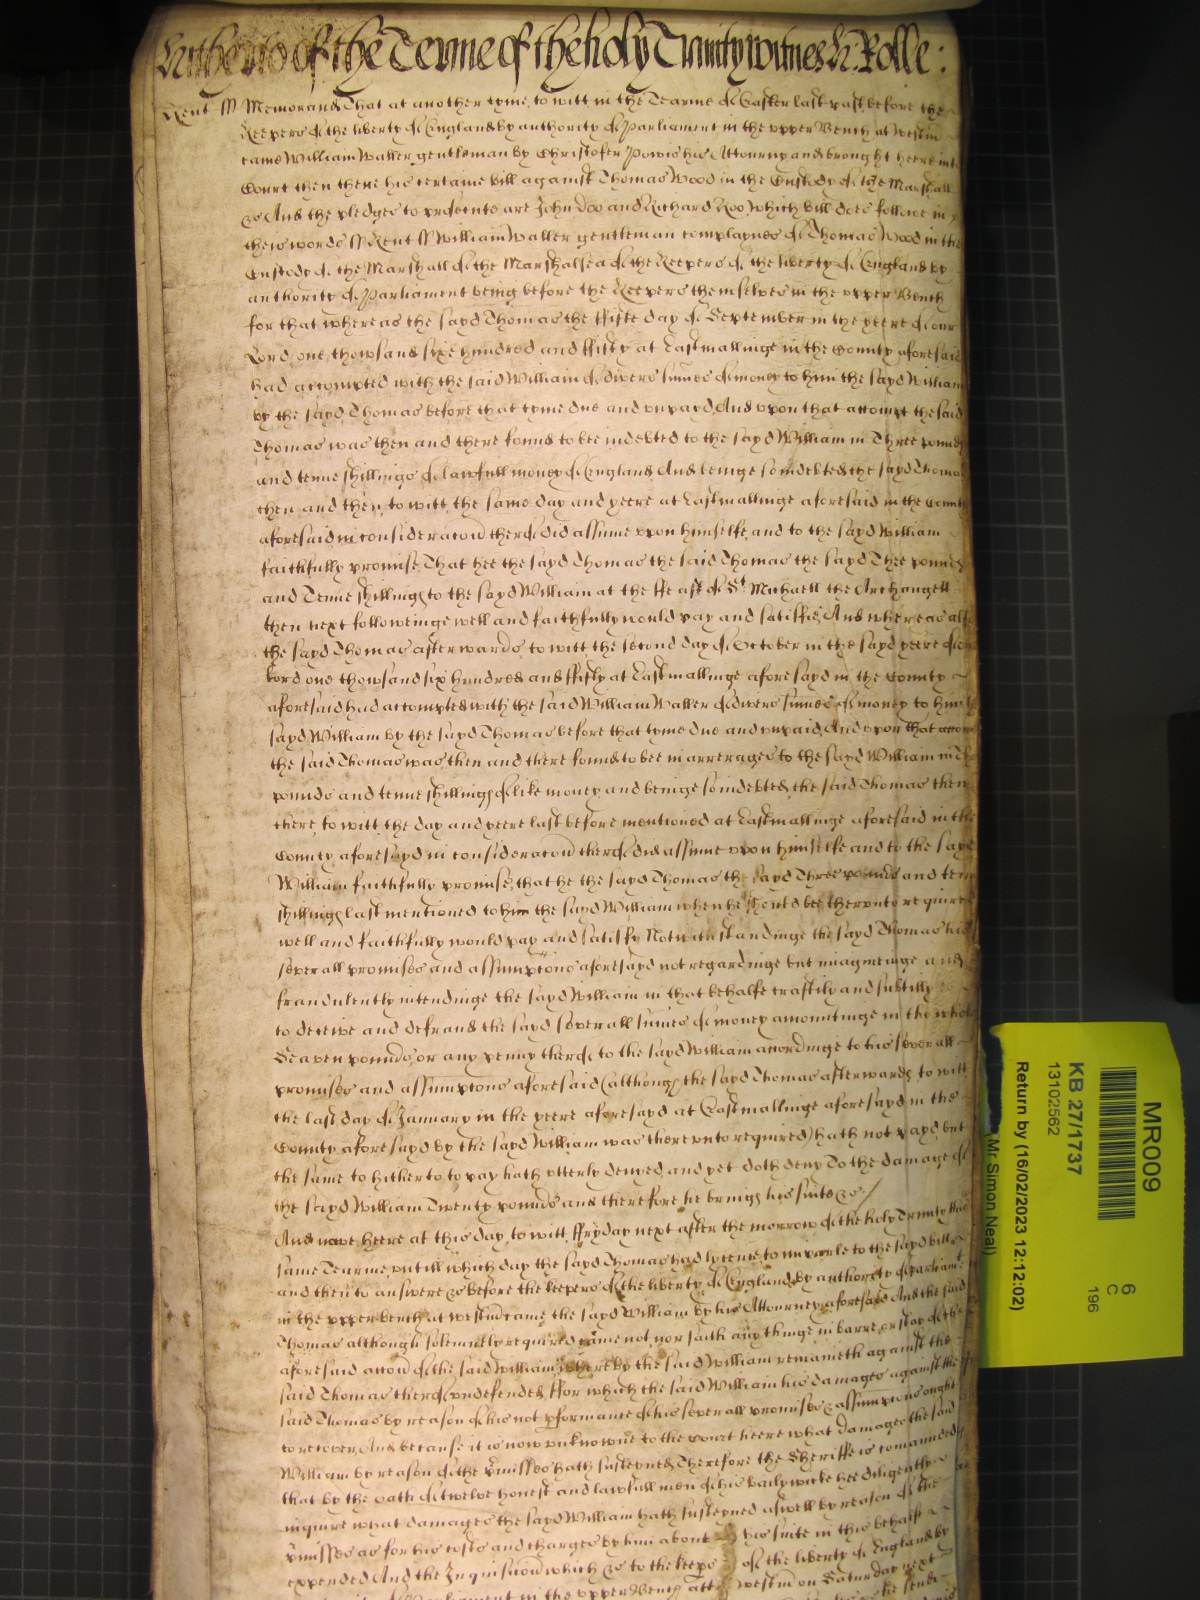 Hitherto of the Terme of the holy Trinity witnes H. Rolle:
Kent ss Memorand That at another tyme, to witt in the Tearme of Easter last past before the
Keepers of the liberty of England by authority of Parliament in the upper Bench at Westm
came William Waller gentleman by Christofer Powis his Attourny and brought heere into
Court then there his certaine bill against Thomas Wood in the Custody of the Marshall
&c And the pledges to prosecute are John Doo and Richard Roo, which bill does follow in
theis words ss Kent ss William Waller gentleman complaynes of Thomas Wood in the
Custody of the Marshall of the Marshalsea of the Keepers of the liberty of England by
authority of Parliament being before the Keepers themselves in the upper Bench
for that whereas the sayd Thomas the ffifte day of September in the yeere of our
Lord one thowsand sixe hundred and ffifty at Eastmallinge in the County aforesaid
had accompted with the said William of divers sumes of money to him the sayd William
by the sayd Thomas before that tyme due and unpayd, And upon that accompt the said
Thomas was then and there found to bee indebted to the sayd William in Three pounds
and tenne shillings of lawfull money of England And beinge so indebted the sayd Thomas
then and then, to witt, the same day and yeere at Eastmallinge aforesaid in the County
aforesaid in consideracon therof did assume upon himselfe, and to the sayd William
faithfully promise That hee the sayd Thomas the said Thomas the sayd Thee pounds
and Tenne shillings to the sayd William at the ffeast of St Michaell the Archangell
then next followeinge well and faithfully would pay and satisfie, And whereas also
the sayd Thomas afterwards to witt the second day of October in the sayd yeere of our
Lord one thowsand six hundred and ffifty at Eastmallinge aforesayd in the County
aforesaid had accompted with the said William Waller of divers sumes of money to him the
sayd William by the sayd Thomas before that tyme due and unpaid, And upon that accompt
the said Thomas was then and there found to bee in arrerages to the sayd William in
pounds and tenne shillings of like money and beinge so indebted, the said Thomas then
there, to witt the day and yeere last before mentioned at Eastmallinge aforesaid in the
County aforesayd in consideracon therof did assume upon himselfe and to the sayd
William faithfully promise, that he the sayd Thomas the sayd Three pounds and tenne
shillings last mentioned to him the sayd William when he should bee therunto required
well and faithfully would pay and satisfy Notwithstandinge the sayd Thomas his
severall promises and assumptions aforesayd not regardinge but imagineinge and
fraudulently intendinge the sayd William in that behalfe craftily and subtilly
to deceive and defraud the sayd severall sumes of money amountinge in the whole
Seaven pounds, or any penny therof, to the sayd William accordinge to his severall
promises and assumptions aforesaid (although the sayd Thomas afterwards, to witt
the last day of January in the yeere aforesayd at Eastmallinge aforesayd in the
County aforesayd by the sayd William was thereunto required) hath not payd but
the same to hitherto to pay hath utterly denyed and yet doth deny To the damage of
the sayd William Twenty pounds and therefore he brings his suite &c
And nowe heere at this day, to witt, ffryday next after the morrow of the holy Trinity this
same Tearme, untill which day the sayd Thomas had lycence to imparle to the sayd bill
and then to answere &c before the keepers of the liberty of England by authority of Parliament
in the upper bench at westm came the sayd William by his Attourney aforesaid And the said
Thomas although solemnely required came not nor saith any thinge in barre or stay of the
aforesaid accon of the said William whereby the said William remaineth against the
said Thomas therof undefended, ffor which the said William his damages against the
said Thomas by reason of his not performance of his severall promises & assumptions ought
to recover, And because it is now unknowne to the court heere what damages the said
William by reason of the premisses hath susteyned, Therefore the Sheriffe is comanded
that by the oath of twelve honest and lawfull men of his bailywicke hee diligently
inquire what damages the sayd William hath susteyned aswell by reason of the
premisses as for his costs and charges by him about his suite in this behalfe
expended And the Inquisicon which &c to the keepers of the liberty of England by
Parliament in the upper Bench att westm on Saturday next
MR009
6
C
196
KB 27/1737
13102562
Return by (16/02/2023 12:12:02)
Mr Simon Neal)